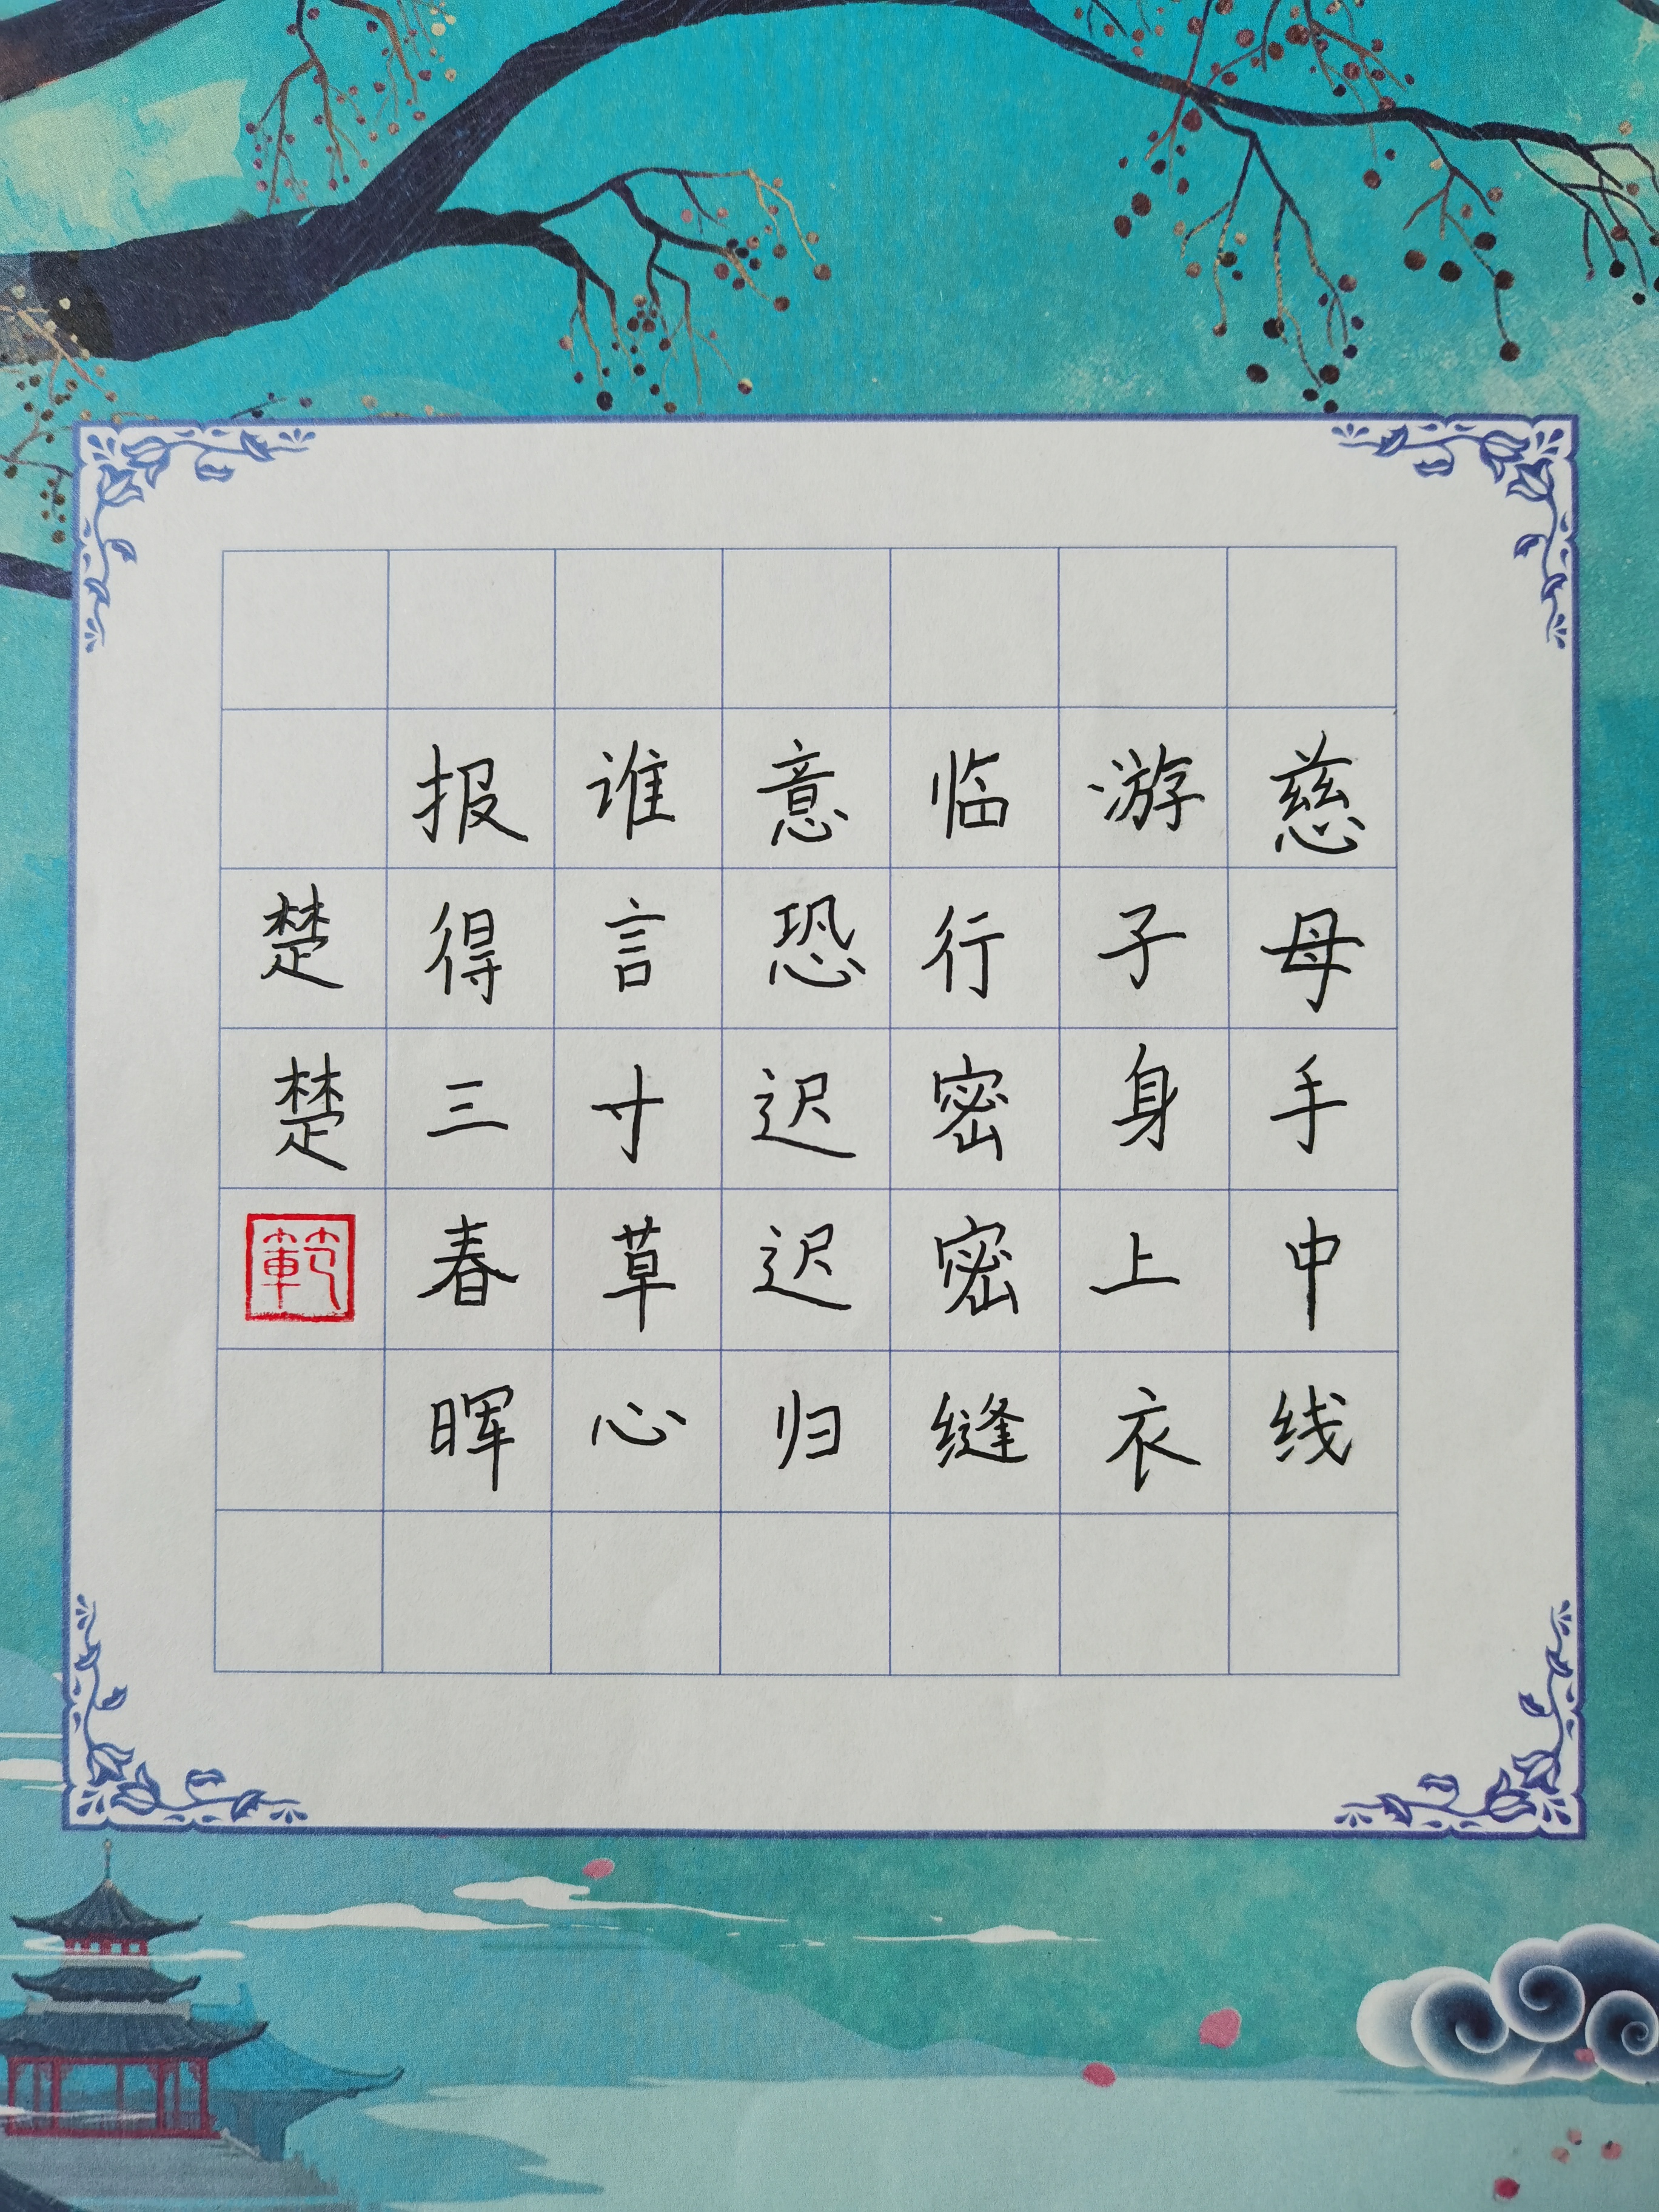 慈母手中线
游子身上衣
临行密密缝
意恐迟迟归
谁言寸草心
报得三春晖
楚楚
範